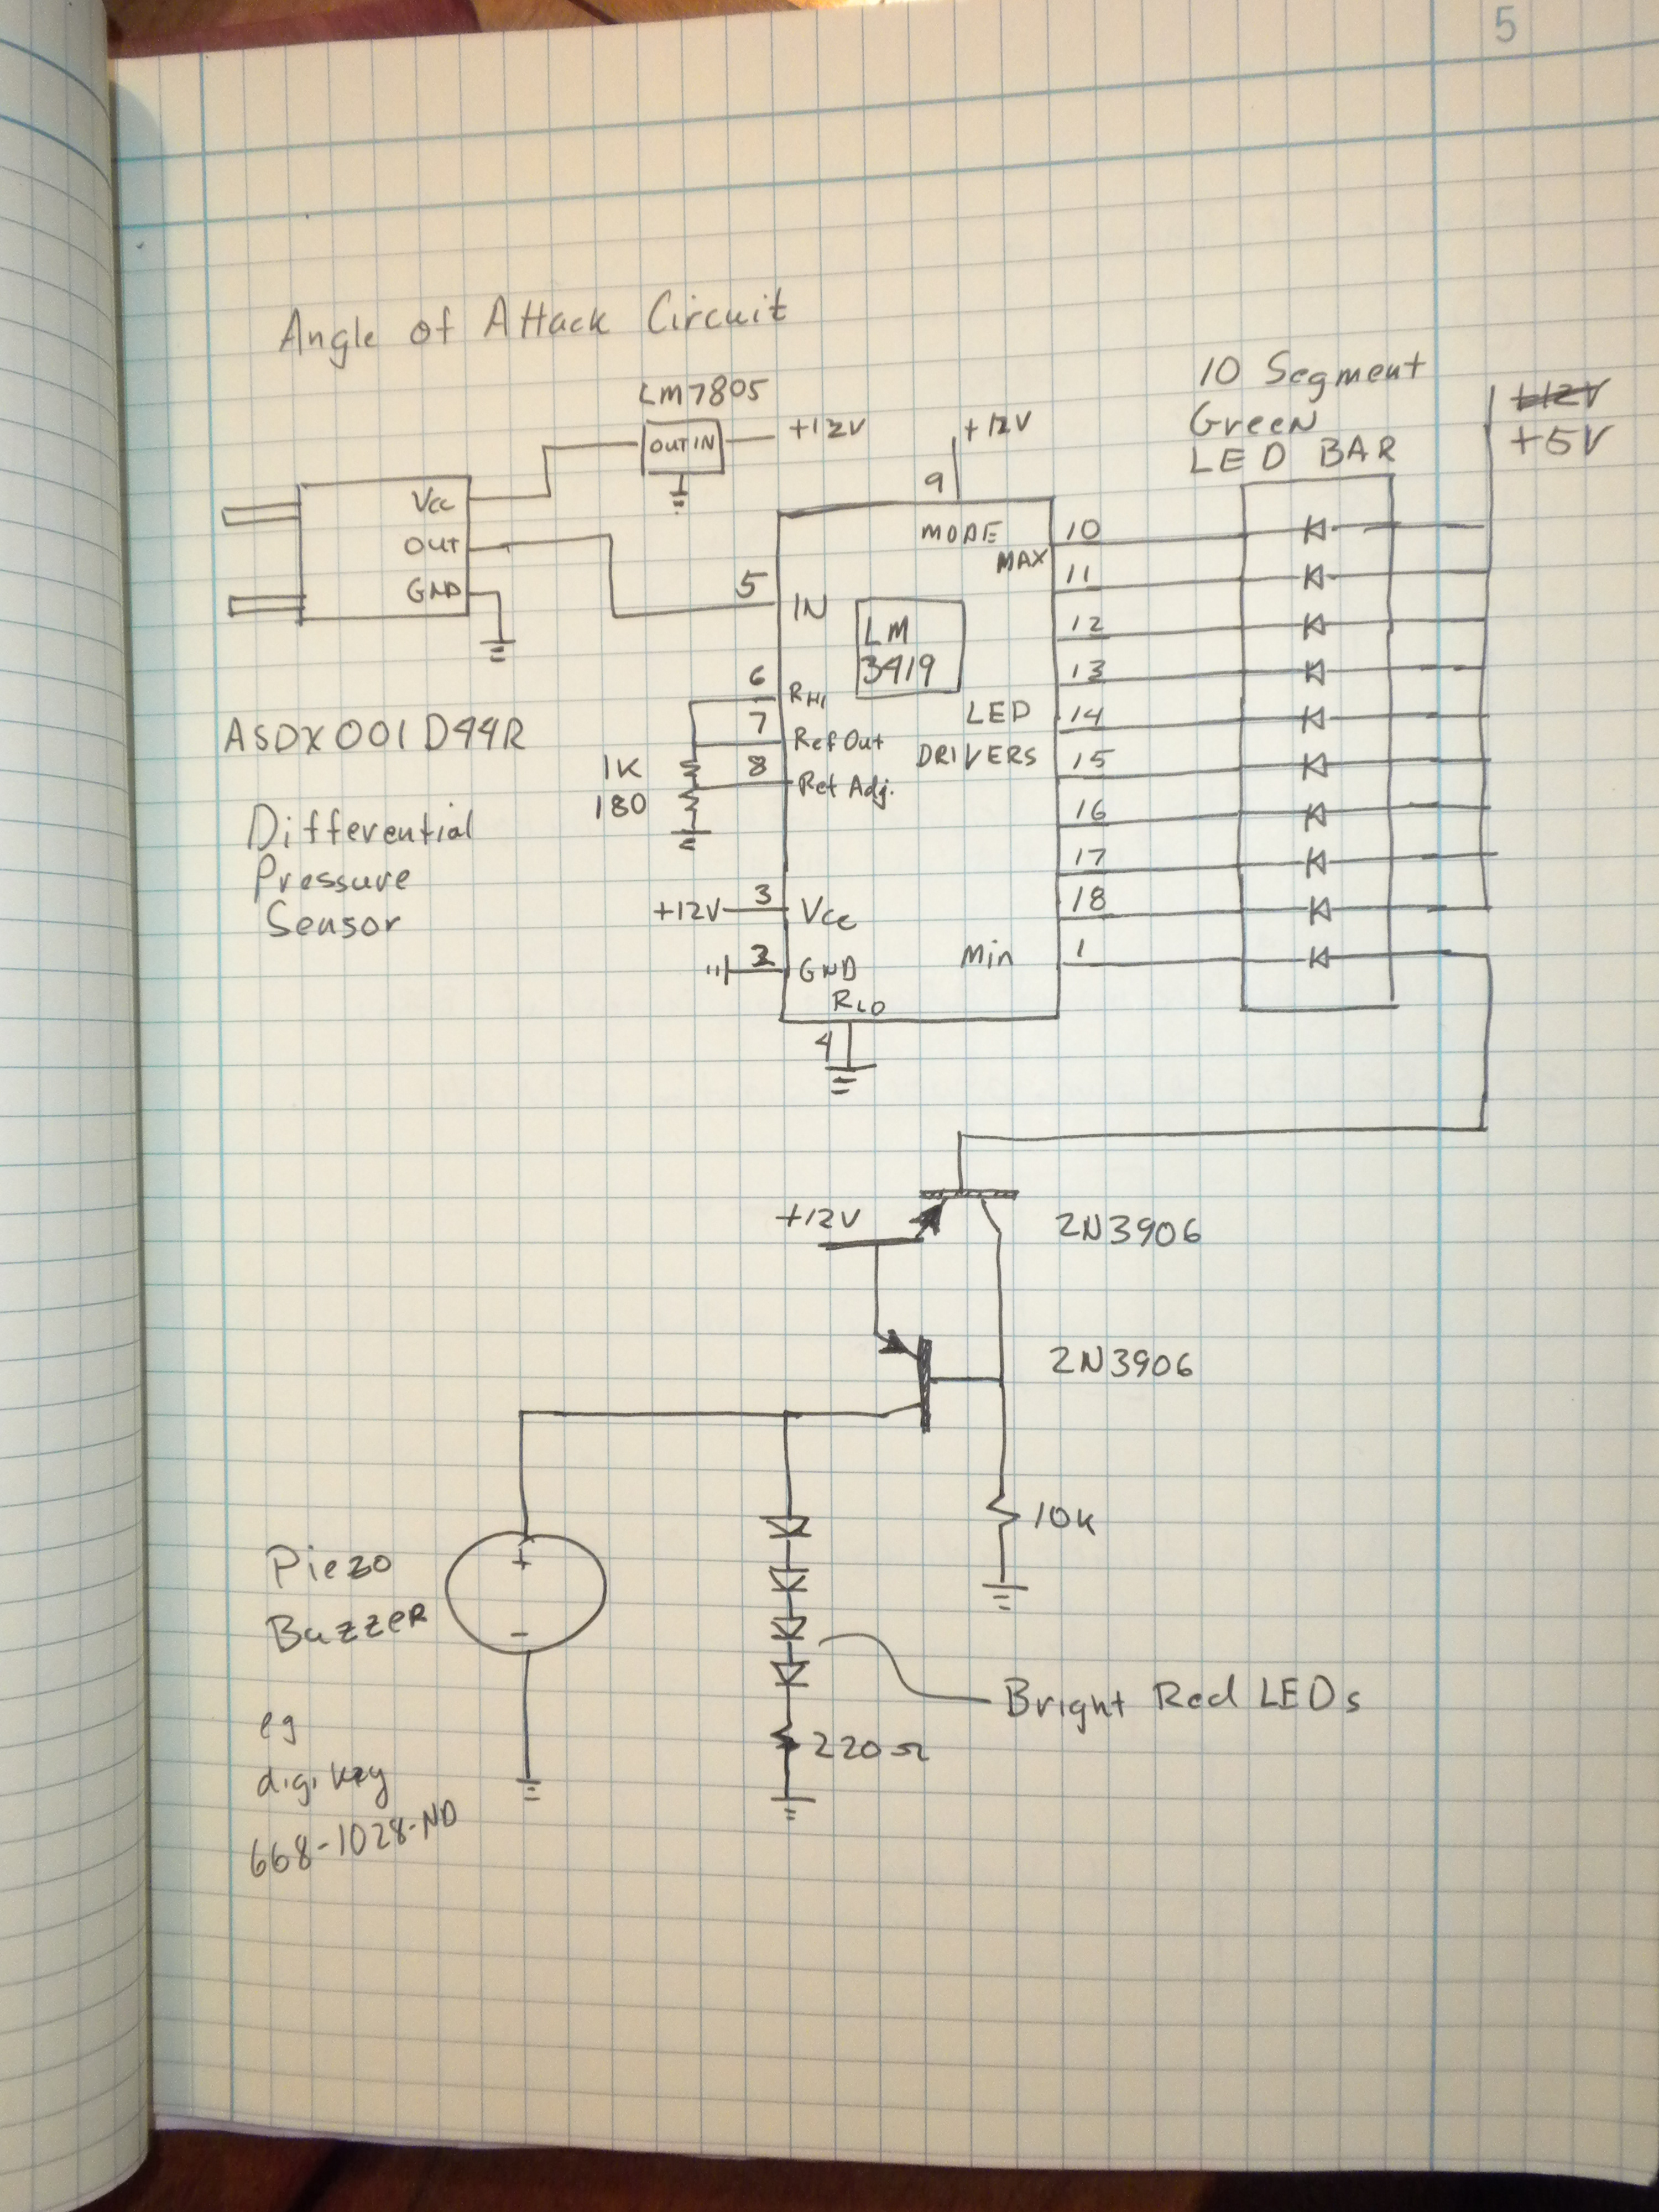 5
Angle of Attack Circuit
LM7805
OUT IN
+12V
+12V
10 Segment
Green
LED BAR
+12V
+5V
Vcc
OUT
GND
9
MODE
MAX
5
IN
LM
3919
6
RHI
7
Ref Out
8
Ref Adj.
1K
180
LED
DRIVERS
+12V
3
Vcc
2
GND
RLO
4
Min
10
11
12
13
14
15
16
17
18
1
ASDX001D44R
Differential
Pressure
Sensor
+12V
2N3906
2N3906
10K
Piezo
Buzzer
+
-
eg
digi key
668-1028-ND
Bright Red LEDs
220Ω